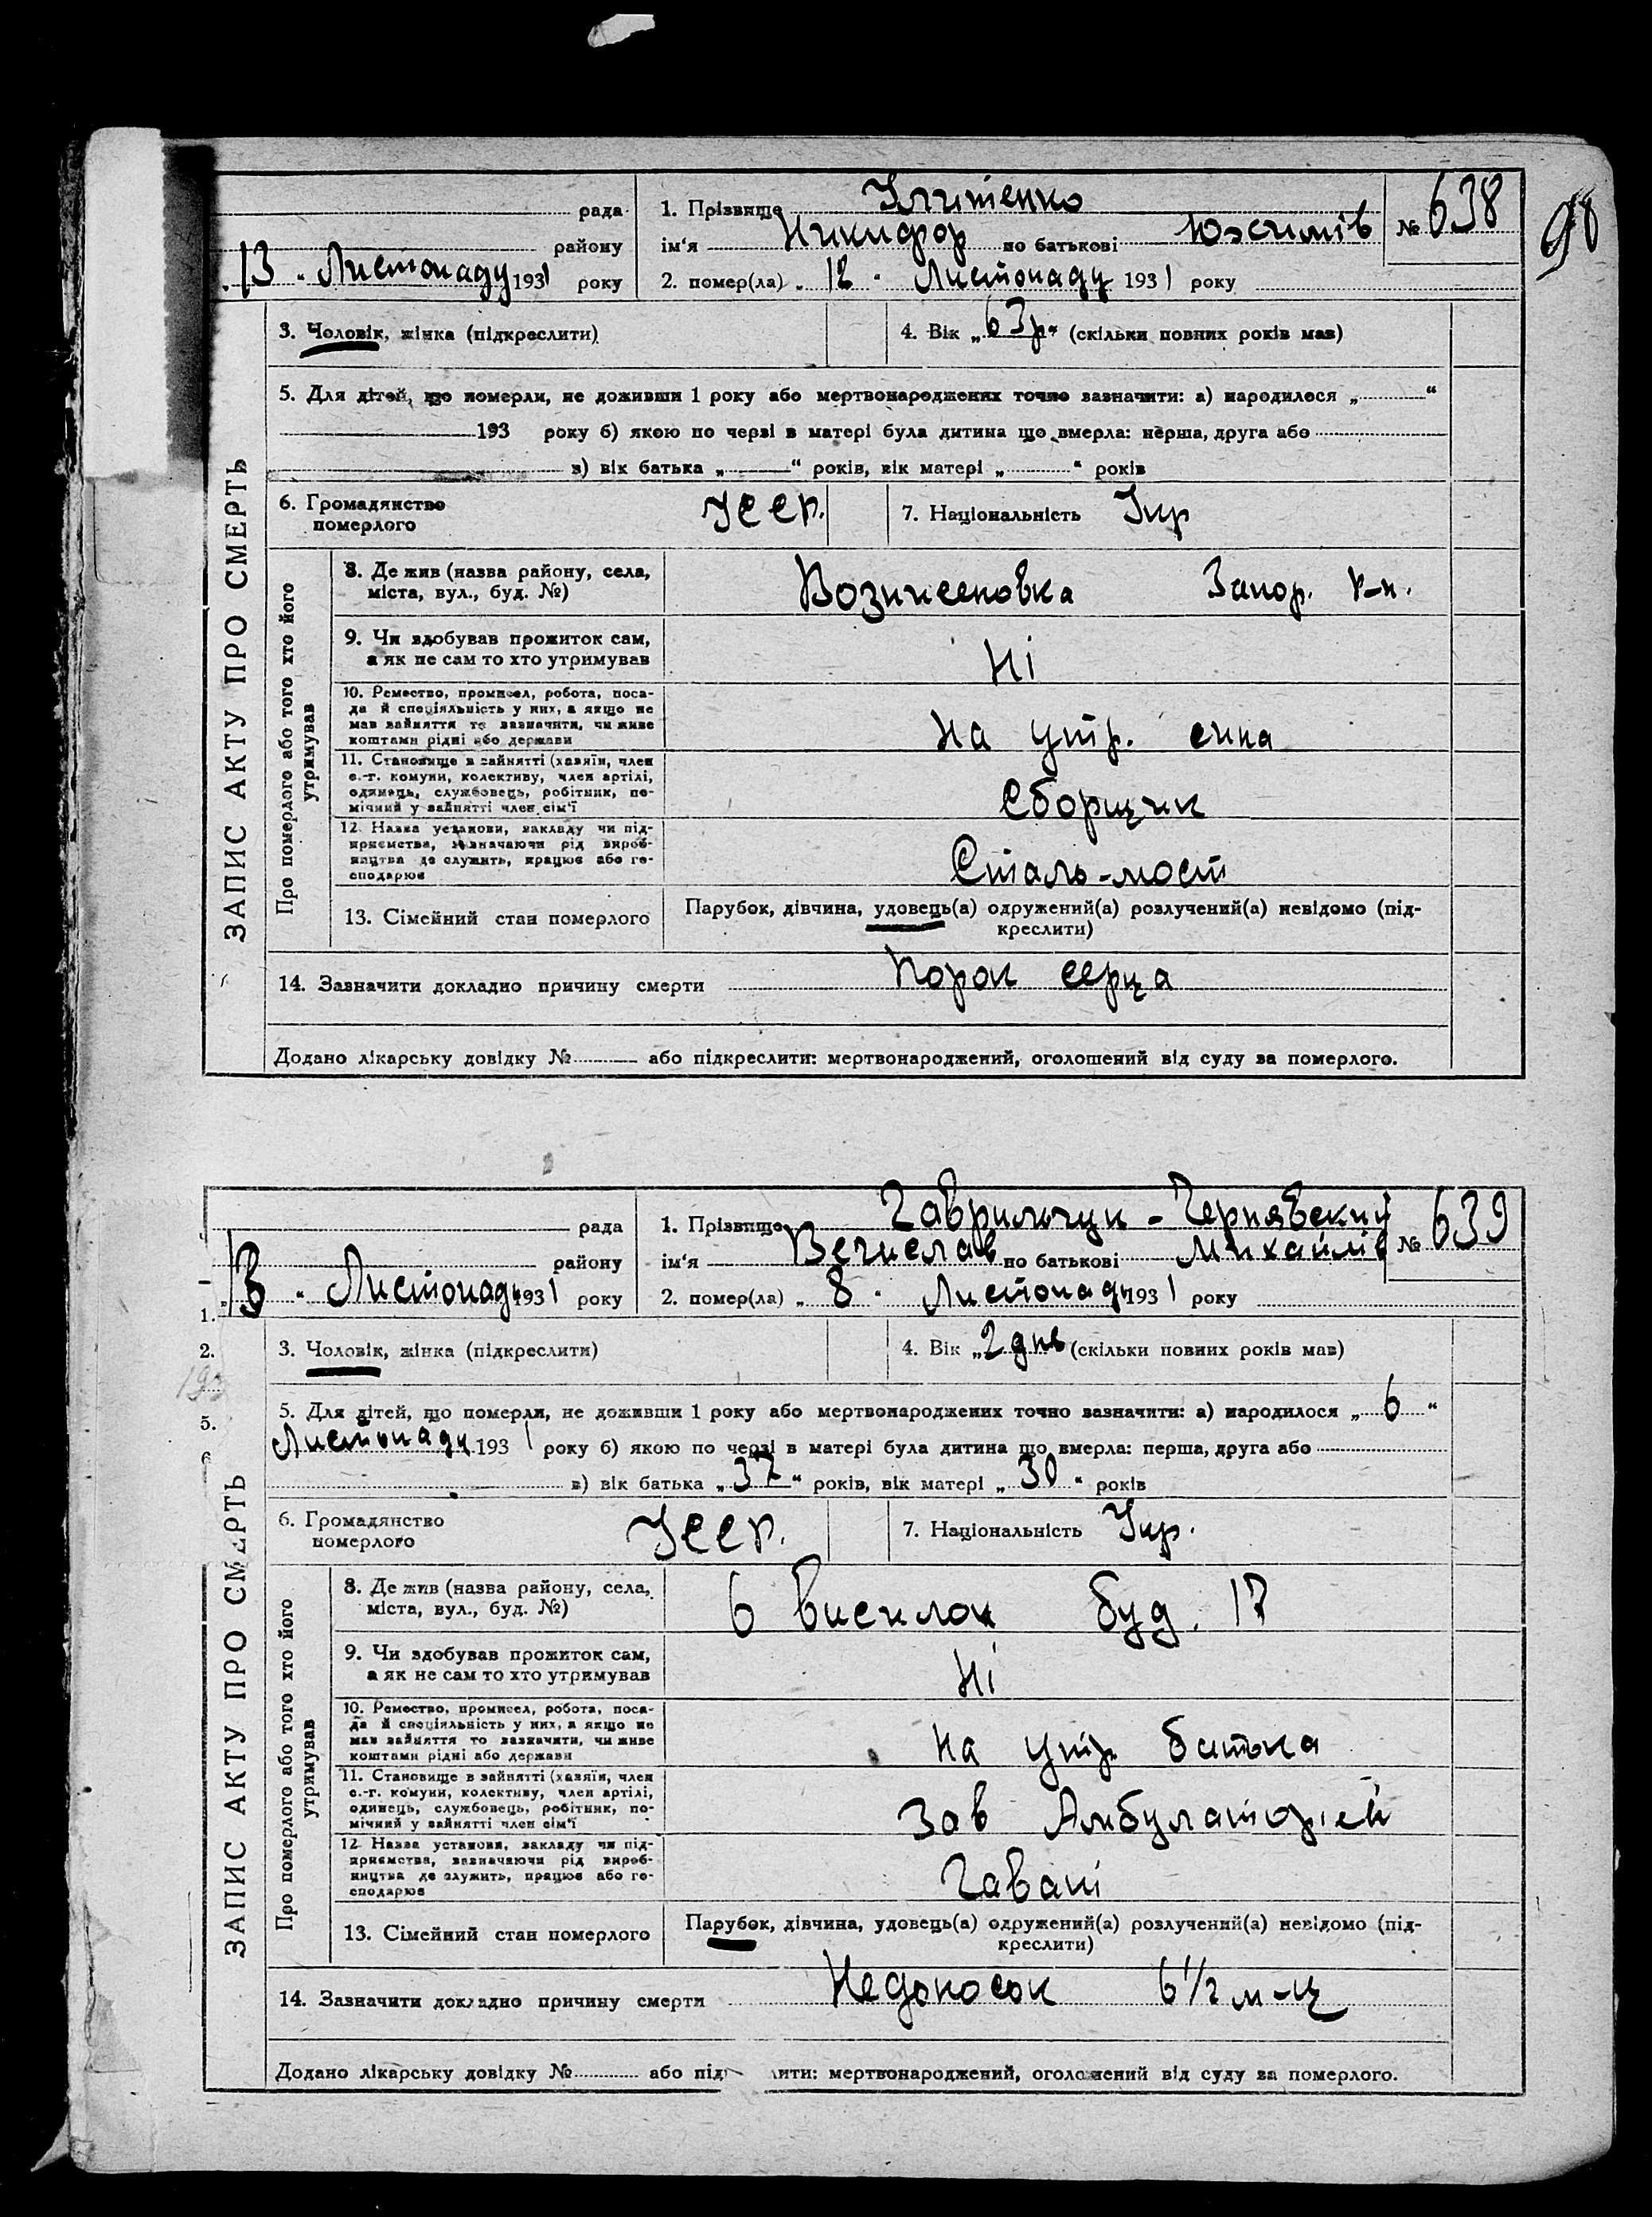 98
ЗАПИС АКТУ ПРО СМЕРТЬ
рада
району
„13“ Листопаду 1931 року
1. Прізвище
ім‘я Никифор по батькові
2. помер(ла) „12“ Листопаду 1931 року
№ 638
3. Чоловік, жінка (підкреслити)
4. Вік „63р“ (скільки повних років мав)
5. Для дітей, що померли, не доживши 1 року або мертвонароджених точно зазначити: а) народилося „ “
193 року б) якою по черзі в матері була дитина що вмерла: перша, друга або
в) вік батька „ “ років, вік матері „ “ років
6. Громадянство
померлого
УССР.
7. Національність Укр
Про померлого або того хто його
утримував
8. Де жив (назва району, села,
міста, вул., буд. №)
Вознисеновка Запор. р-н.
9. Чи здобував прожиток сам,
а як не сам то хто утримував
Ні
10. Ремество, промисел, робота, поса-
да й спеціяльність у них, а якщо не
мав зайняття то зазначити, чи живе
коштами рідні або держави
на утр. сина
11. Становище в зайнятті (хазяїн, член
с.-г. комуни, колективу, член артілі,
одинець, службовець, робітник, по-
мічний у зайнятті член сім‘ї
Сборщик
12. Назва установи, закладу чи під-
приємства, зазначаючи рід вироб-
ництва де служить, працює або го-
сподарює
Сталь-мост
13. Сімейний стан померлого
Парубок, дівчина, удовець(а) одружений(а) розлучений(а) невідомо (під-
креслити)
14. Зазначити докладно причину смерти Порок серца
Додано лікарську довідку № або підкреслити: мертвонароджений, оголошений від суду за померлого.
ЗАПИС АКТУ ПРО СМЕРТЬ
рада
району
Листопаду 1931 року
1. Прізвище Гаврильчук - Чернявский
ім‘я Вечислав по батькові Михайлів
2. помер(ла) „8“ Листопаду 1931 року
№ 639
1.
2.
5.
6
3. Чоловік, жінка (підкреслити)
4. Вік „2 дня (скільки повних років мав)
5. Для дітей, що померли, не доживши 1 року або мертвонароджених точно зазначити: а) народилося „6“
Листопаду 1931 року б) якою по черзі в матері була дитина що вмерла: перша, друга або
в) вік батька „37“ років, вік матері „30“ років
6. Громадянство
померлого
УССР.
7. Національність Укр.
Про померлого або того хто його
утримував
8. Де жив (назва району, села,
міста, вул., буд. №)
6 висилок буд. 17
9. Чи здобував прожиток сам,
а як не сам то хто утримував
Ні
10. Ремество, промисел, робота, поса-
да й спеціяльність у них, а якщо не
мав зайняття то зазначити, чи живе
коштами рідні або держави
на утр. батька
11. Становище в зайнятті (хазяїн, член
с.-г. комуни, колективу, член артілі,
одинець, службовець, робітник, по-
мічний у зайнятті член сім‘ї
Зав Амбулаторіей
12. Назва установи, закладу чи під-
приємства, зазначаючи рід вироб-
ництва де служить, працює або го-
сподарює
Гавані
13. Сімейний стан померлого
Парубок, дівчина, удовець(а) одружений(а) розлучений(а) невідомо (під-
креслити)
14. Зазначити докладно причину смерти Недоносок 6 1/2 м-ц
Додано лікарську довідку № або під ити: мертвонароджений, оголошений від суду за померлого.